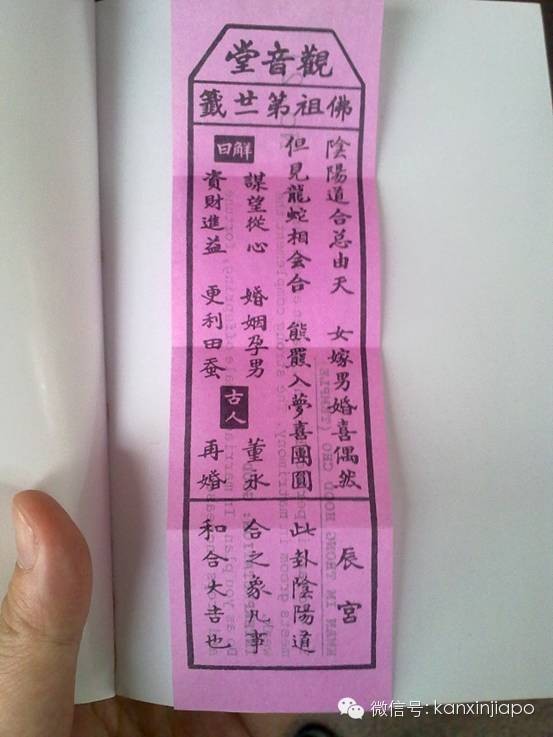 觀音堂
佛祖第廿一籤
陰陽道合总由天　女嫁男婚喜偶然
但見龍蛇相会合　熊羆入夢喜團圓
解曰
謀望從心　婚姻孕男
資財進益　更利田蚕
古人
董永
再婚
辰宮
此卦陰陽道
合之象凡事
和合大吉也
微信号: kanxinjiapo